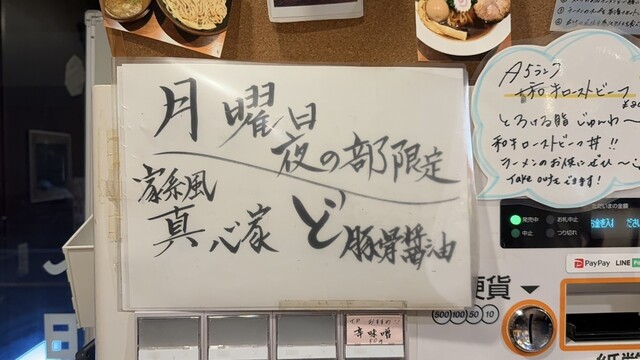 月曜日
夜の部限定
家系風
真心家
ど豚骨醤油
A5ランク
和牛ローストビーフ
とろける脂 じゅわ〜
和牛ローストビーフ丼!!
ラーメンのお供にぜひ〜
Take outもできます!
発売中
お札中止
中止
つり切れ
PayPay
LINE Pay
硬貨
500 100 50 10
辛味噌
50円